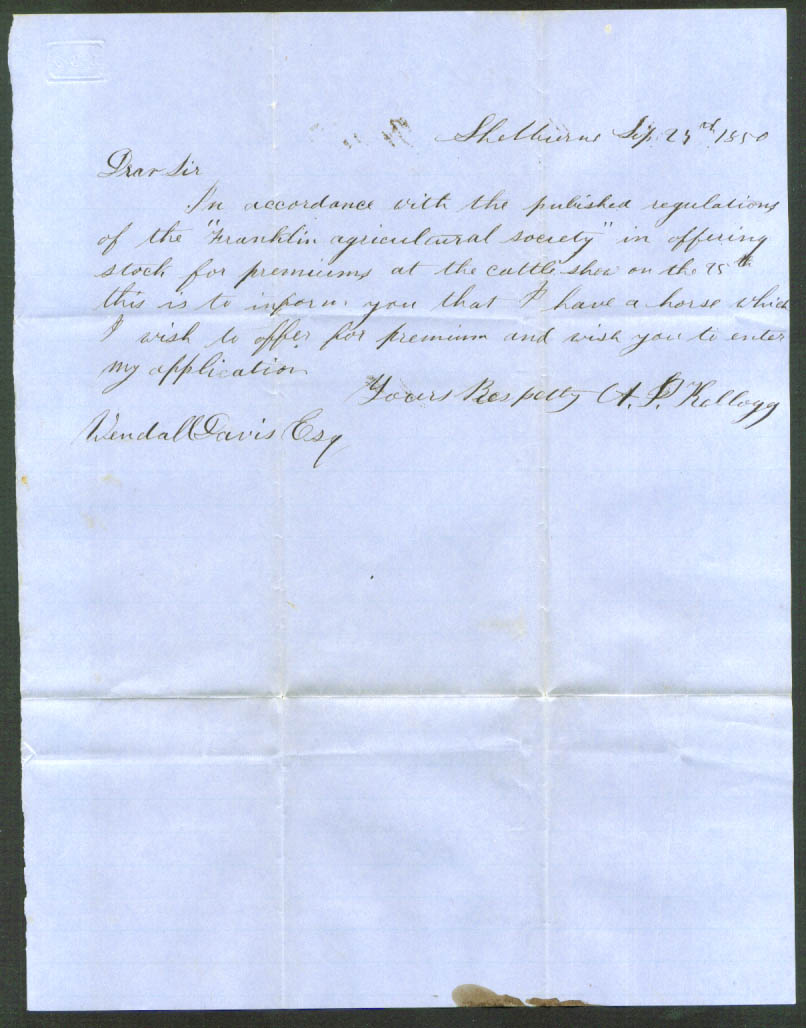 Shelburne Sep. 23rd 1850
Dear Sir
In accordance with the published regulations
of the "Franklin agricultural society" in offering
stock for premiums at the cattle show on the 25th
this is to inform you that I have a horse which
I wish to offer for premium and wish you to enter
my application
Yours Respetty A. P. Kellogg
Wendall Davis Esq